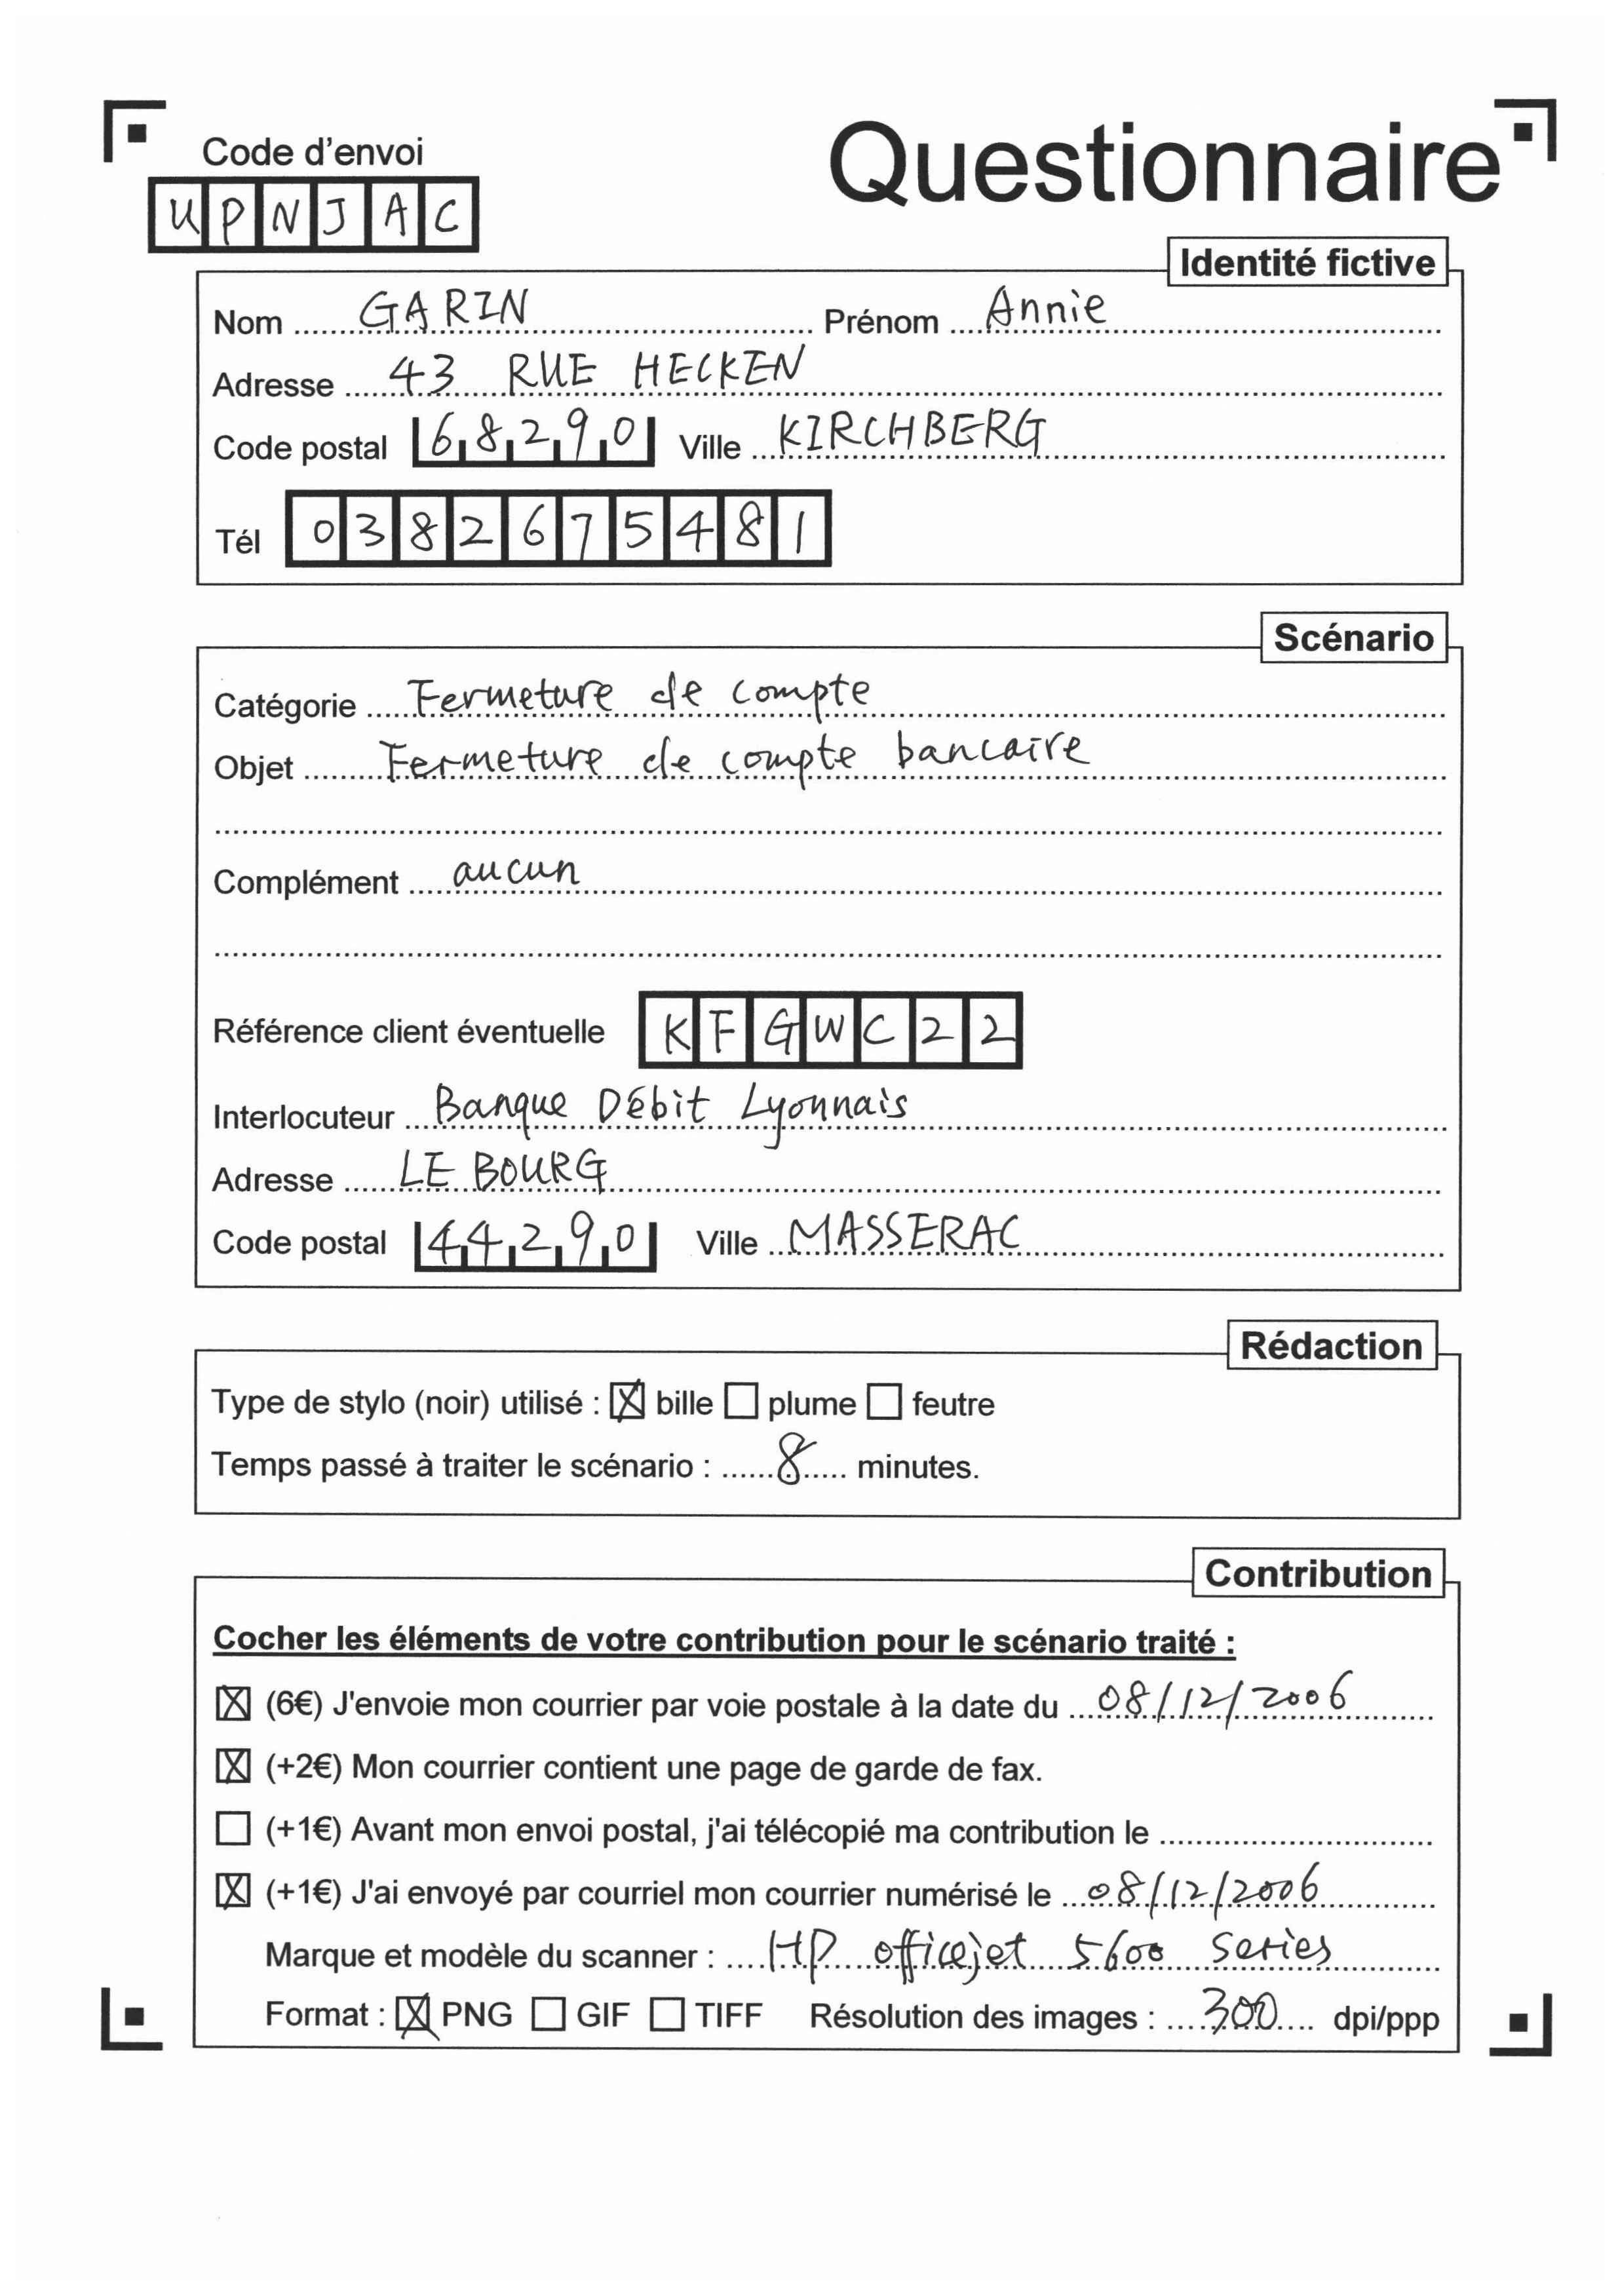 Code d'envoi
Questionnaire
UPNJAC
Identité fictive
Nom GARIN Prénom Annie
Adresse 43 RUE HECKEN
Code postal 68290 Ville KIRCHBERG
Tél 0382675481
Scénario
Catégorie Fermeture de compte
Objet Fermeture de compte bancaire
Complément aucun
Référence client éventuelle KFGWC22
Interlocuteur Banque Débit Lyonnais
Adresse LE BOURG
Code postal 44290 Ville MASSERAC
Rédaction
Type de stylo (noir) utilisé : ☒ bille ☐ plume ☐ feutre
Temps passé à traiter le scénario : 8 minutes.
Contribution
Cocher les éléments de votre contribution pour le scénario traité :
☒ (6€) J'envoie mon courrier par voie postale à la date du 08/12/2006
☒ (+2€) Mon courrier contient une page de garde de fax.
☐ (+1€) Avant mon envoi postal, j'ai télécopié ma contribution le
☒ (+1€) J'ai envoyé par courriel mon courrier numérisé le 08/12/2006
Marque et modèle du scanner : HP officejet 5600 series
Format : ☒ PNG ☐ GIF ☐ TIFF Résolution des images : 300 dpi/ppp